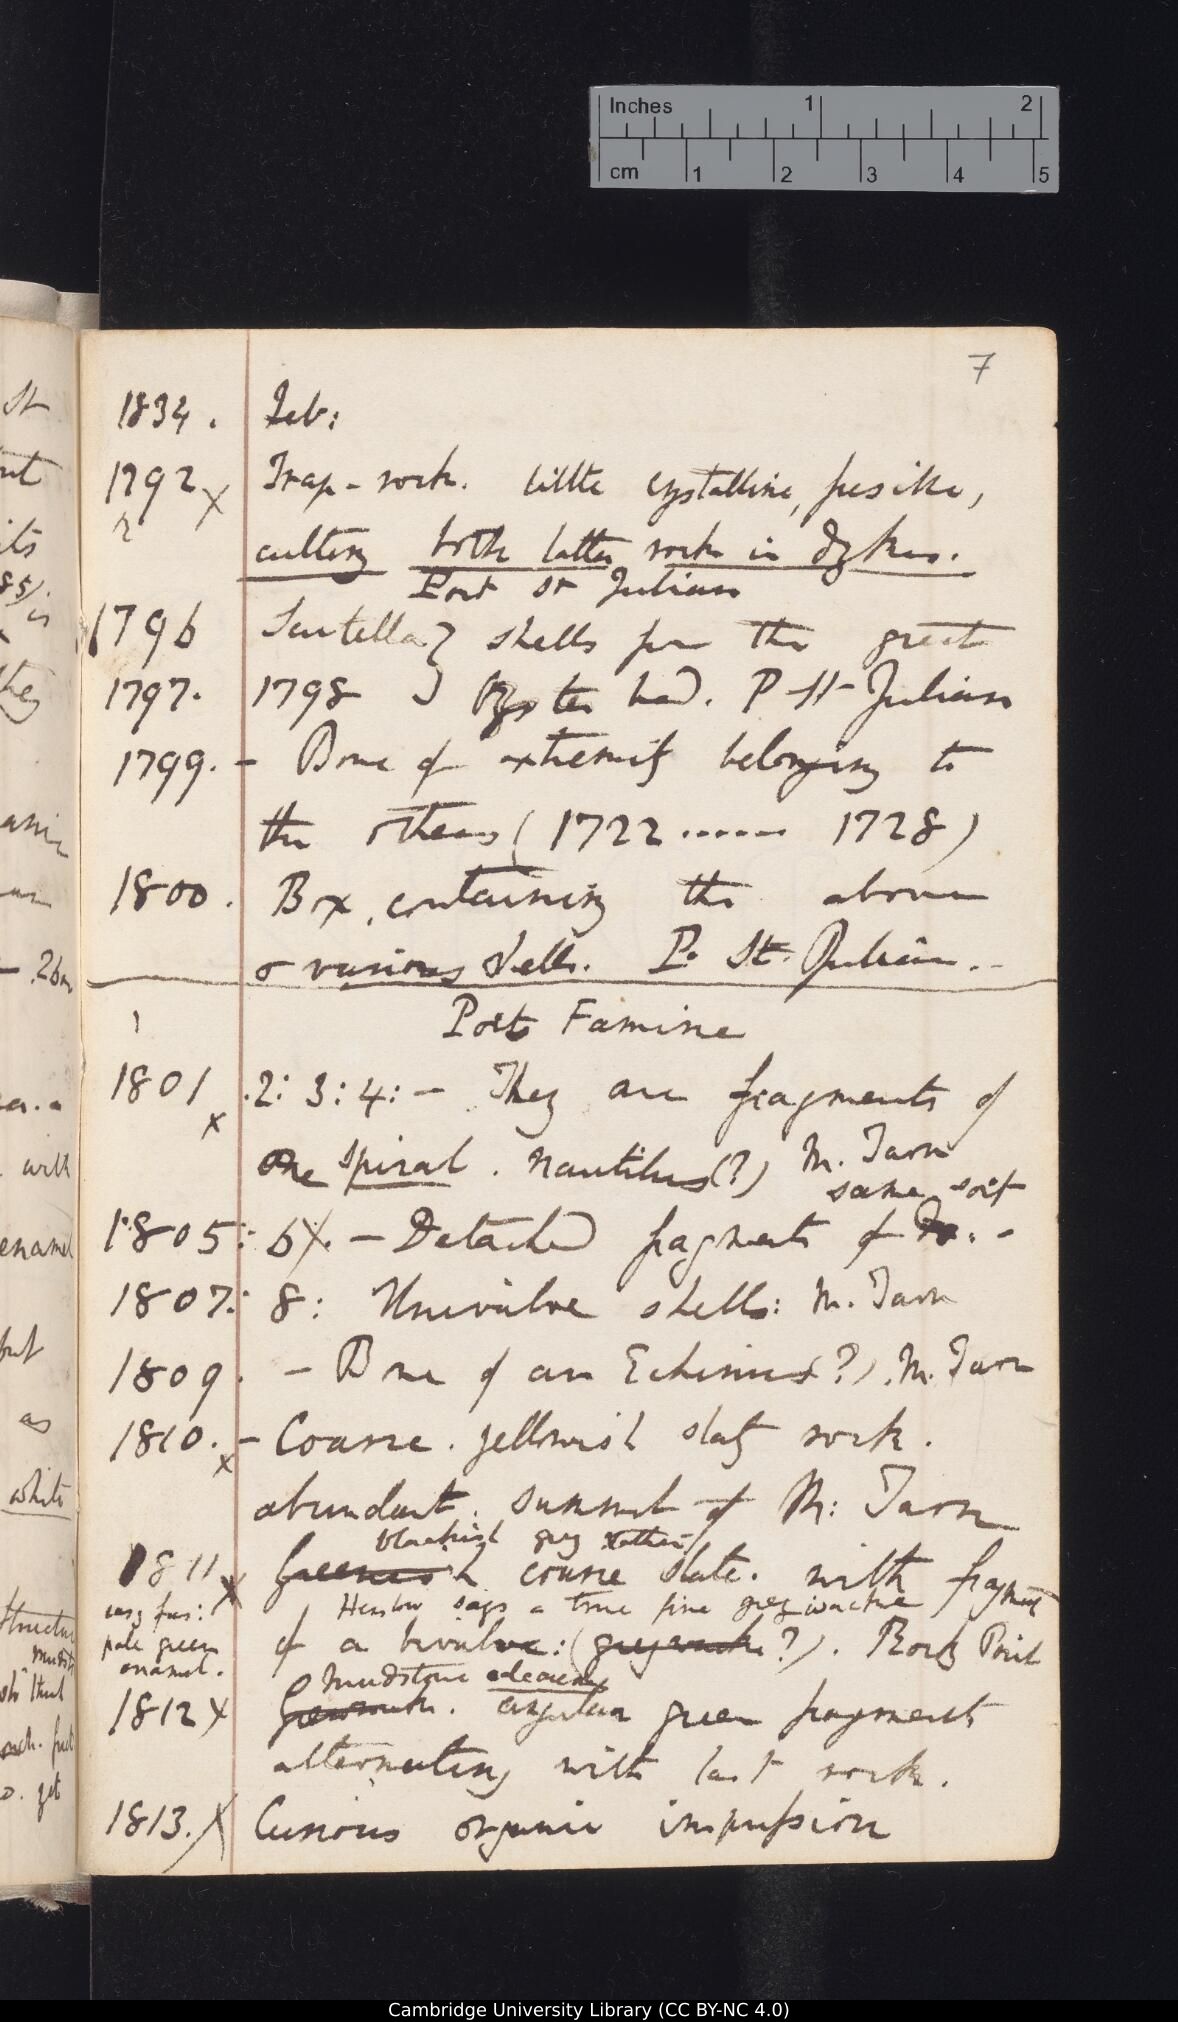 Inches 1 2
cm 1 2 3 4 5
7
1834. Feb:
1792 x Trap-rock. little crystalline, fusible,
cutting both latter rocks in dykes.
Port St Julian
1796 Scutella } shells from the great
1797. 1798 } Oyster bed. P St Julian
1799. - Bone of extremity belonging to
the others (1722 ...... 1728)
1800. Box, containing the above
& various shells. P. St. Julian.-
Port Famine
1801 x .2: 3: 4: - They are fragments of
one spiral. nautilus(?) M. Tarn
same sort
1805: 6 x. - Detached fragments of Do. -
1807: 8: Univalve shells: M. Tarn
1809. - Bone of an Echinus(?). M. Tarn
1810. x - Coarse. yellowish slaty rock.
abundant. summit of M: Tarn
blackish grey rather
1811 x Greenish coarse slate. with fragment
easy fus: Henslow says a true fine greywacke
pale green of a bivalve: (greywacke?). Rocky Point
enamel.
Mudstone
1812 x Greywacke. angular green fragments
alternating with last rock.
1813. x Curious organic impression
St
its
is
they
with
enamel
but
as
white
Cambridge University Library (CC BY-NC 4.0)